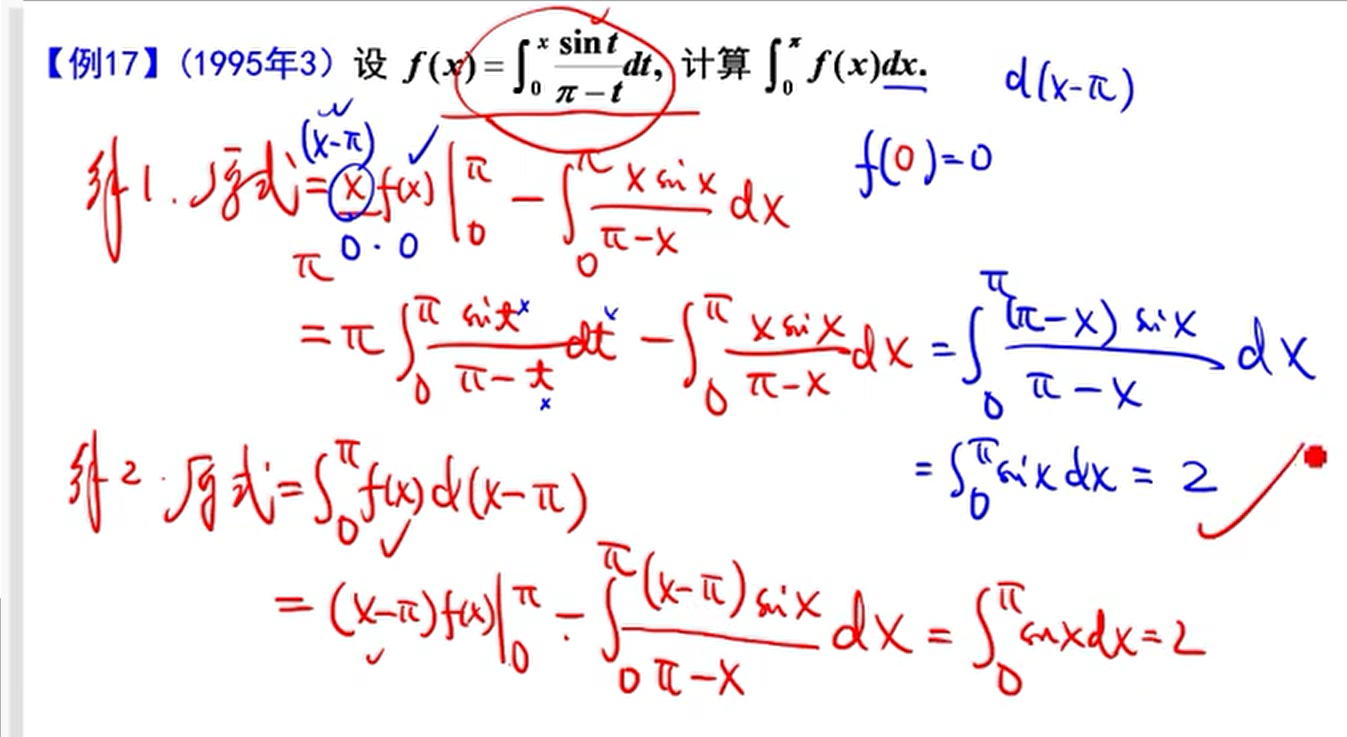 【例17】(1995年3) 设 f(x) = ∫₀ˣ sin t / (π − t) dt, 计算 ∫₀^π f(x)dx.
d(x−π)
f(0)=0
(x−π)
解1. 原式 = x f(x) |₀^π − ∫₀^π x sin x / (π−x) dx
0 · 0
π
= π ∫₀^π sin t / (π−t) dt − ∫₀^π x sin x / (π−x) dx = ∫₀^π (π−x) sin x / (π−x) dx
x x x
= ∫₀^π sin x dx = 2
解2. 原式 = ∫₀^π f(x) d(x−π)
= (x−π) f(x) |₀^π − ∫₀^π (x−π) sin x / (π−x) dx = ∫₀^π sin x dx = 2